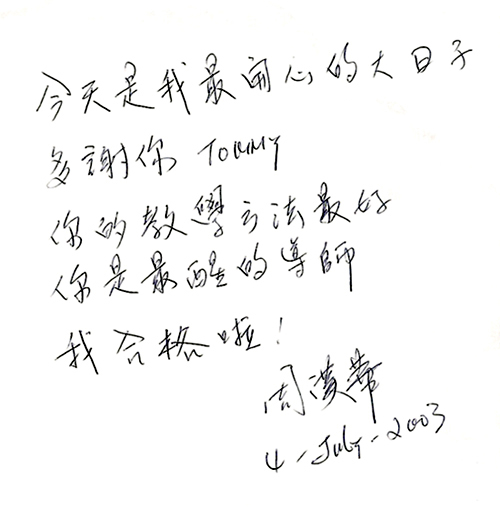 今天是我最開心的大日子
多謝你 TOMMY
你的教學方法最好
你是最醒的導師
我合格啦！
周漢華
4-July-2003